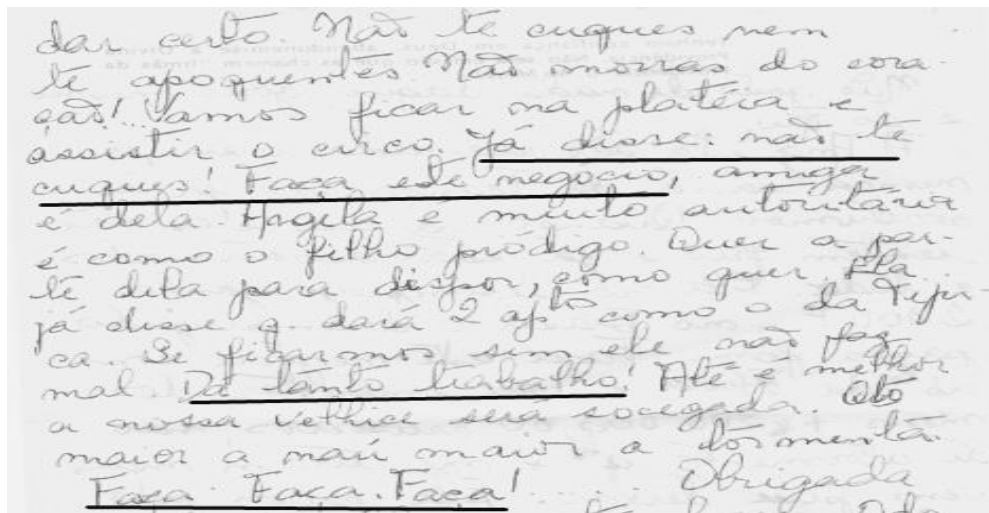 dar certo. Não te cuques nem
te apoquentes Não morras do cora-
ção! Vamos ficar na platéia e
assistir o circo. Já disse: não te
cuques! Faça este negócio, amiga
é dela. Angela é muito autoritária
é como o filho pródigo. Quer a par-
te dela para dispor, como quer. Ela
já disse q. dará 2 aptº como o da Tiju-
ca. Se ficarmos sem ele não faz
mal. Dá tanto trabalho! Até é melhor
a nossa velhice será socegada. Qto
maior a naú maior a tormenta.
Faça. Faça. Faça! ..... Obrigada